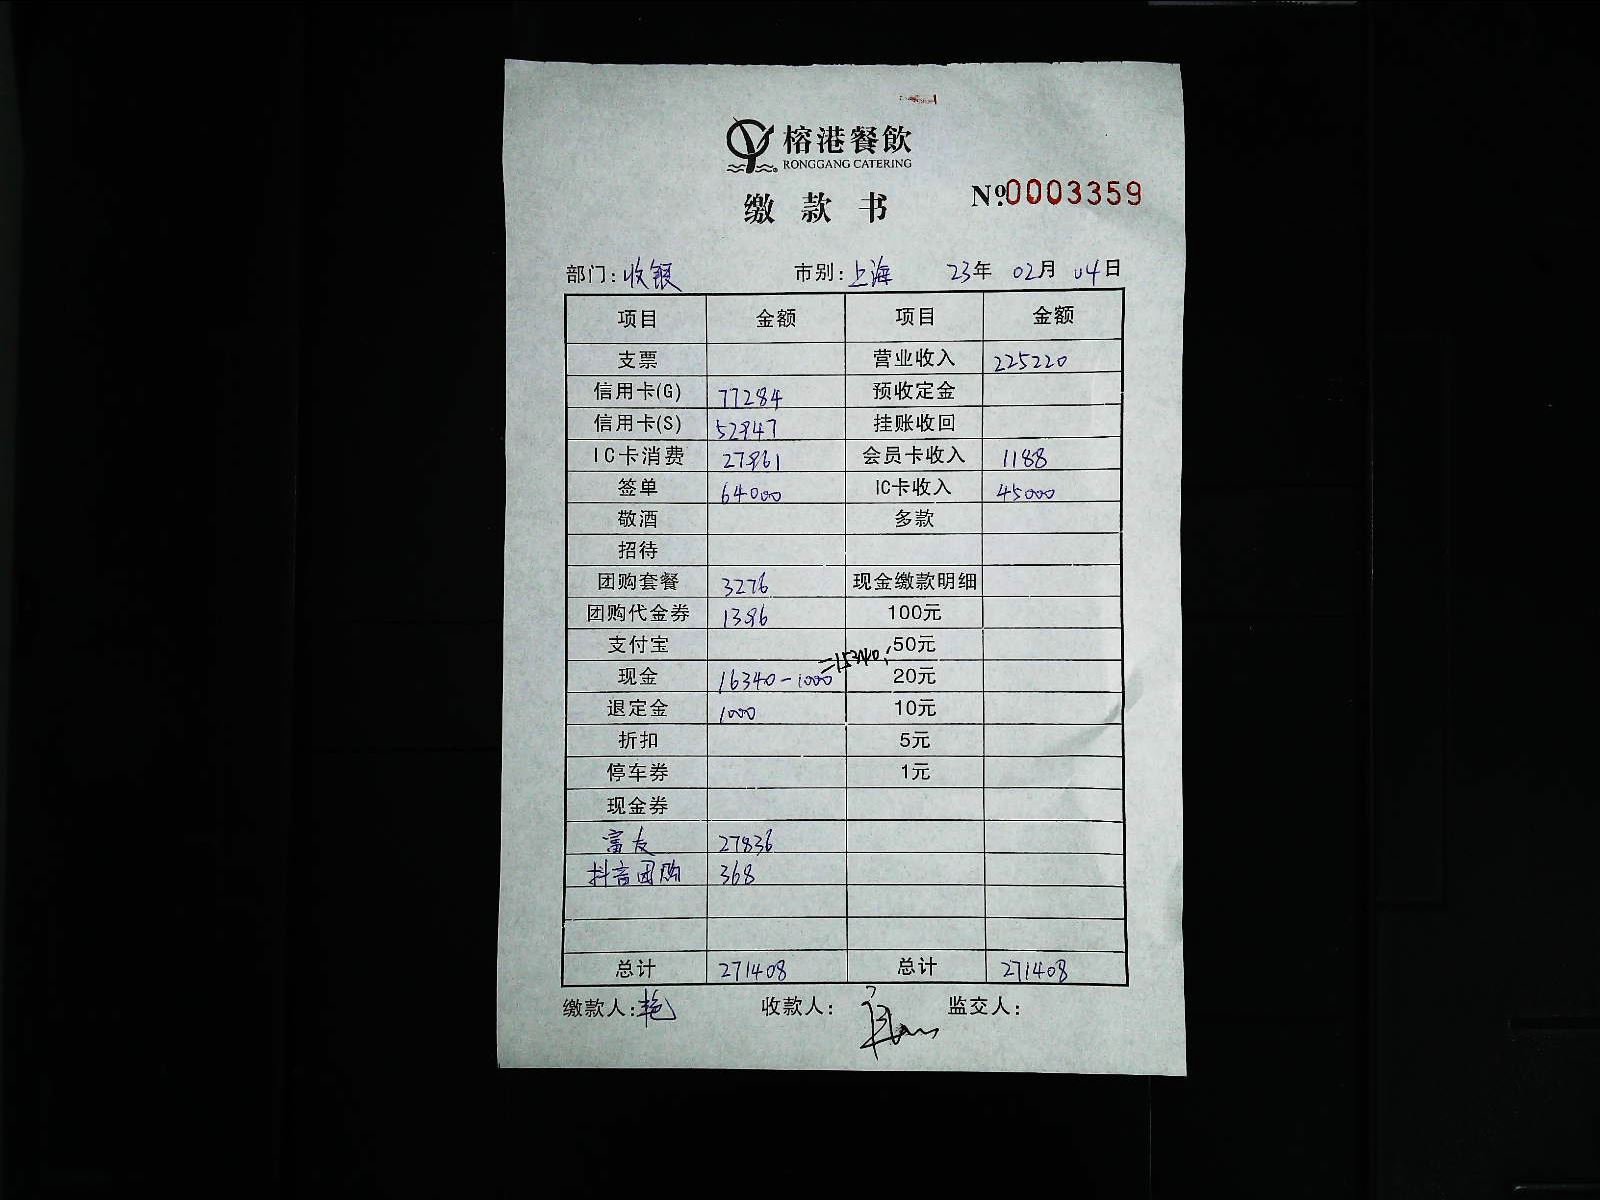 榕港餐飲
RONGGANG CATERING
缴款书 Nº.0003359
部门:收银 市别:上海 23年 02月 04日
项目 金额 项目 金额
支票 营业收入 225220
信用卡(G) 77284 预收定金
信用卡(S) 52947 挂账收回
IC卡消费 27961 会员卡收入 1188
签单 64000 IC卡收入 45000
敬酒 多款
招待
团购套餐 3276 现金缴款明细
团购代金券 1396 100元
支付宝 50元
现金 16340-1000=15340 20元
退定金 1000 10元
折扣 5元
停车券 1元
现金券
富友 27836
抖音团购 368
总计 271408 总计 271408
缴款人:艳 收款人: 监交人: